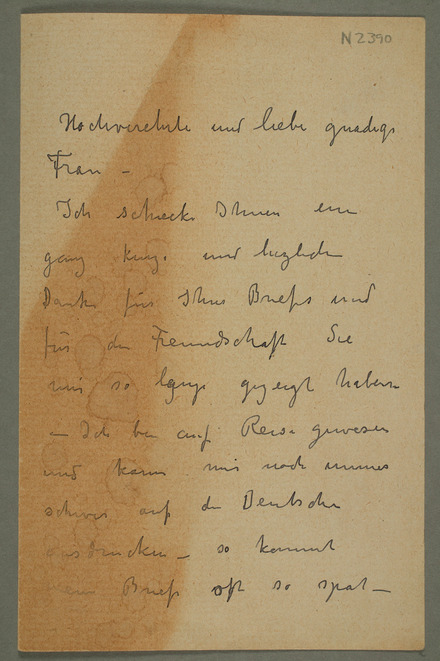 N2390
Hochverehrte und liebe gnädige
Frau –
Ich schicke Ihnen ein
ganz kurze und herzlich
Danke für Ihre Briefs und
für die Freundschaft Sie
mir so lange gezeigt haben
– Ich bin auf Reise gewesen
und kann mir noch immer
schwer auf de Deutsche
ausdrucken – so kommt
mein Brief oft so spat –